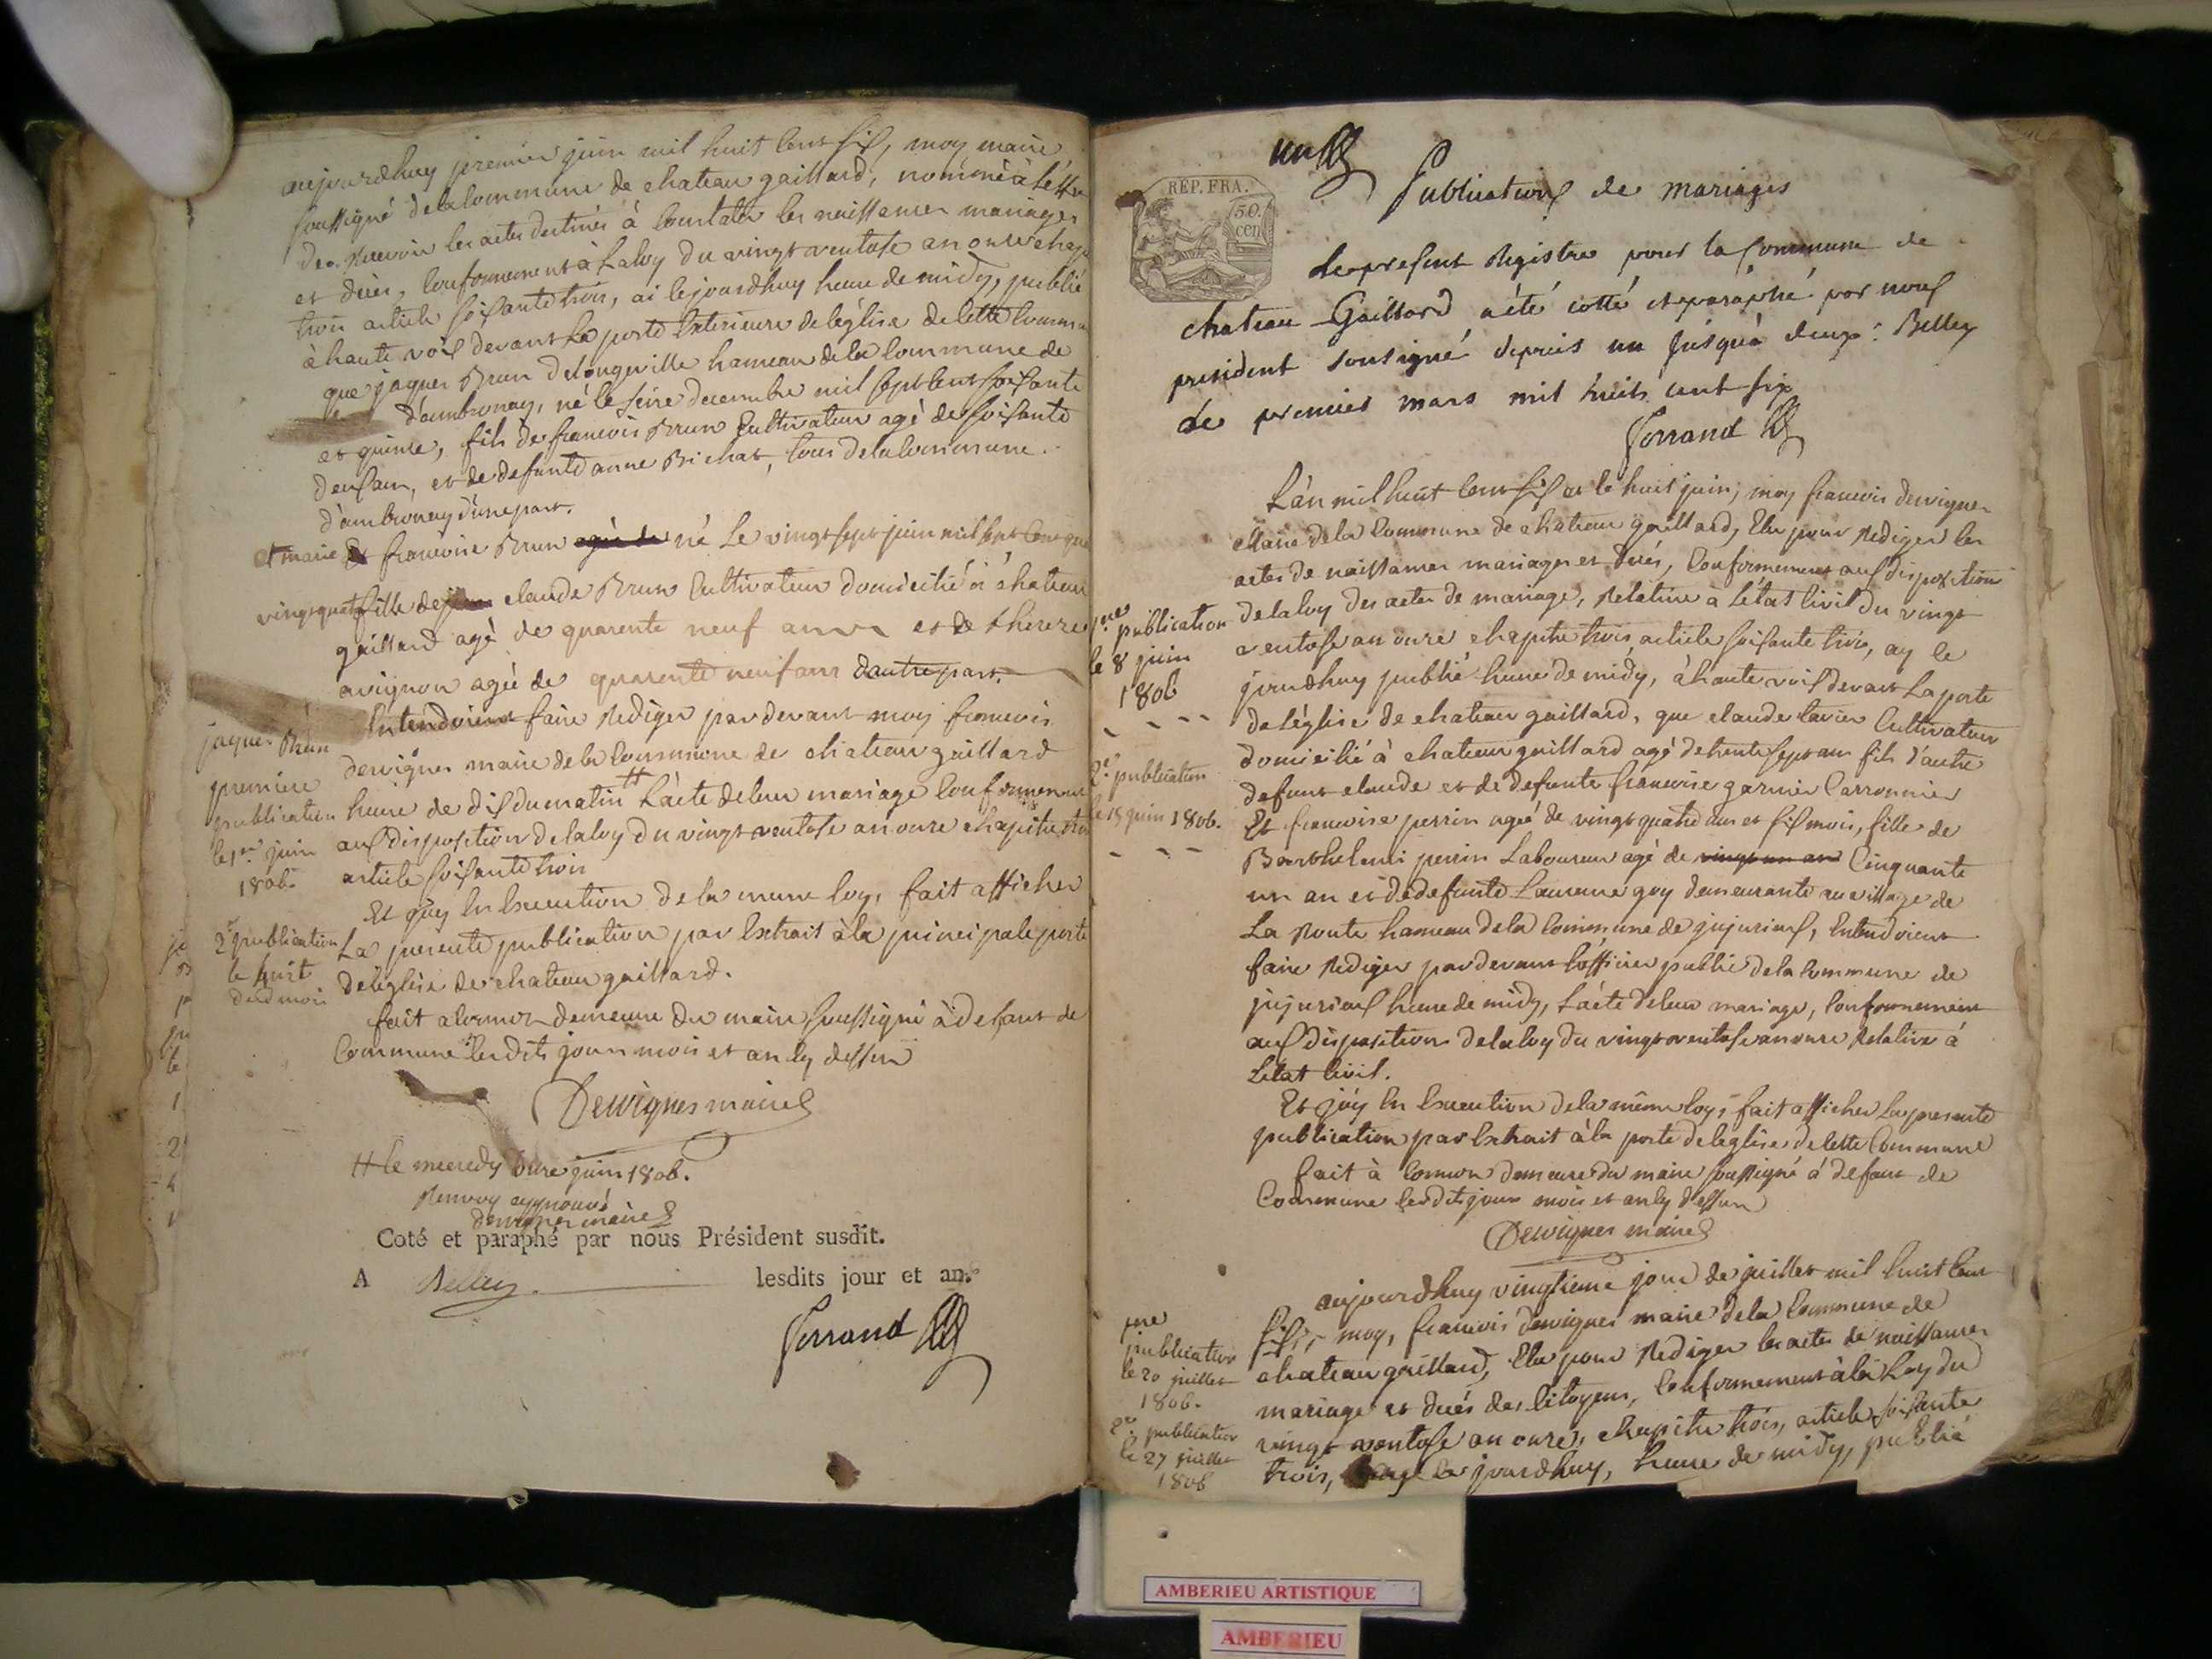 aujourdhuy premier juin mil huit cent six, moy maire
soussigné de la commune de chateau gaillard, nommé à l'effet
de recevoir les actes destinés à constater les naissances mariages
et décés, conformement à la loy du vingt ventose an onze chap
trois article soixante trois, ai cejourdhuy heure de midy, publié
à haute voix devant la porte exterieure de l'église de cette commu
que jaques Brun de longeville hameau de la commune de
d'ambronay, né le seize decembre mil sept cent soixante
et quinze, fils de francois Brun cultivateur agé de soixante
deux ans, et de defunte anne Bichat, tous de la commune
d'ambronay d'une part.
et marie Et francoise Brun agée de né le vingt sept juin mil sept cent quatre
vingt quatre fille de jean claude Brun cultivateur domicilié à chateau
gaillard agé de quarente neuf ans et de thereze
avignon agée de quarente neuf ans d'autre part.
Entendoient faire rediger par devant moy francois
dervignes maire de la commune de chateau gaillard
heure de dix du matin # l'acte de leur mariage conformement
aux disposition de la loy du vingt ventose an onze chapitre trois
article soixante trois
Et j'ay en execution de la meme loy, fait afficher
la presente publication par extrait à la principale porte
de l'église de chateau gaillard.
fait à cormoz demeure du maire soussigné à defaut de
commune lesdits jours mois et an cy dessus
Dervignes maire
# le mercredy onze juin 1806.
Renvoy approuvé
dervignes maire
Coté et paraphé par nous Président susdit.
A Belley. lesdits jour et an.
Sorrand
jaques Brun
premiere
publication
le 1er juin
1806.
2e publication
le huit
dud mois
un
REP. FRA.
50.
cen
Publications de mariages
Le present Registre pour la Commune de
chateau-Gaillard a été cotté et paraphé par nous
president sousigné depuis un jusqu'à deux : Belley
le premier mars mil huit cent six
Sorrand
L'an mil huit cent six et le huit juin, moy francois dervignes
maire de la commune de chateau gaillard, elu pour rediger les
actes de naissances mariages et decés, conformement aux disposition
de la loy des actes de mariage, relative à l'état civil du vingt
ventose an onze chapitre trois, article soixante trois, ay ce
jourdhuy publié heure de midy, à haute voix devant la porte
de l'église de chateau gaillard, que claude cavier cultivateur
domicilié à chateau gaillard agé de trente sept ans fils d'autre
defunt claude et de defunte francoise garnier Carronnier
Et francoise perrin agée de vingt quatre ans et six mois, fille de
Barthelemi perrin Laboureur agé de vingt un an Cinquante
un an et de defunte Laurence goy demeurante au village de
La Route hameau de la commune de jujurieux, entendoient
faire rediger par devant l'officier public de la commune de
jujurieux heure de midy, l'acte de leur mariage, conformement
aux disposition de la loy du vingt ventose an onze relative à
l'état civil.
Et j'ay en execution de la même loy, fait afficher la presente
publication par extrait à la porte de l'église de cette Commune
fait à cormoz demeure du maire soussigné à defaut de
Commune lesdits jours mois et an cy dessus
Dervignes maire
1ere publication
le 8 juin
1806
2e publication
le 15 juin 1806.
aujourdhuy vingtieme jour de juillet mil huit cent
six, moy, francois dervignes maire de la commune de
chateau gaillard, elu pour rediger les actes de naissances
mariage et decés des citoyens, conformement à la loy du
vingt ventose an onze, chapitre trois, article soixante
trois, ay ce jourdhuy, heure de midy, publié
1ere
publication
le 20 juillet
1806.
2e publication
le 27 juillet
1806
AMBERIEU ARTISTIQUE
AMBERIEU